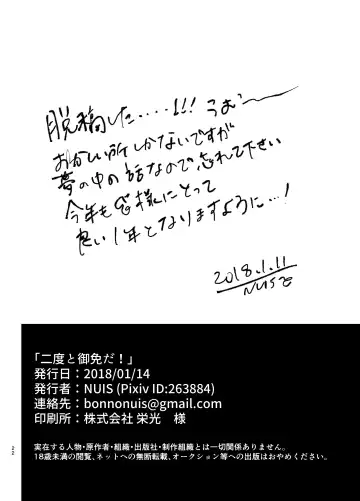 脱稿した・・・・!!! うお〜
おかしい所しかないですが
夢の中の話なので、忘れて下さい
今年も皆様にとって
良い1年となりますように…!
2018.1.11
NUIS
「二度と御免だ!」
発行日:2018/01/14
発行者:NUIS (Pixiv ID:263884)
連絡先:bonnonuis@gmail.com
印刷所:株式会社 栄光 様
実在する人物・原作者・組織・出版社・制作組織とは一切関係ありません。
18歳未満の閲覧、ネットへの無断転載、オークション等への出版はおやめください。